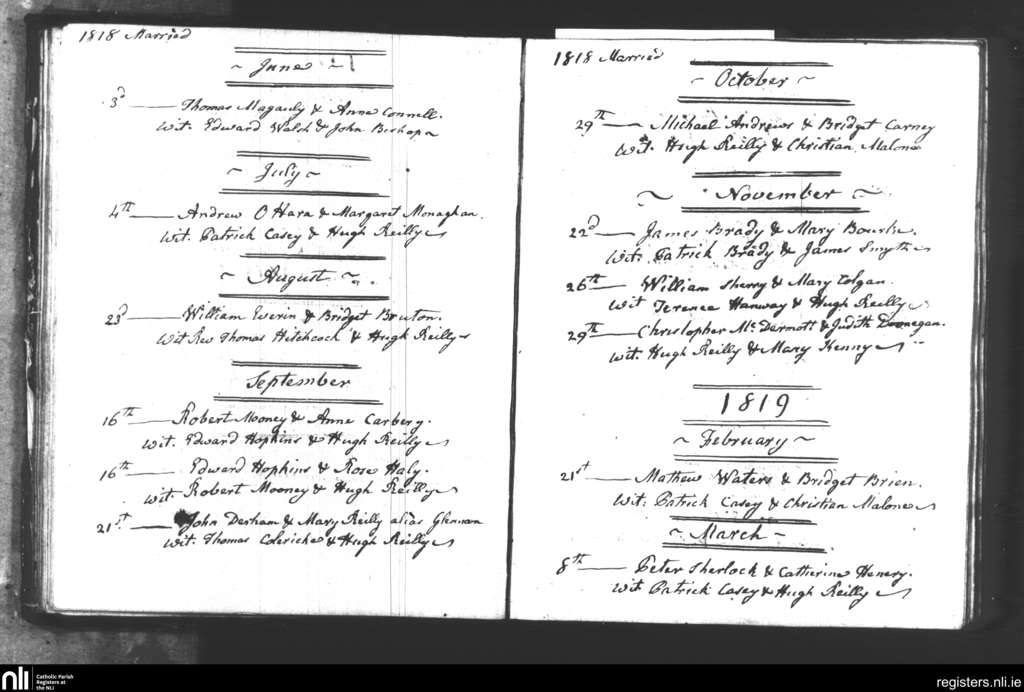 1818 Married
~ June ~
3d — Thomas Magauly & Anne Connell.
Wit. Edward Walsh & John Bishop
~ July ~
4th — Andrew O Hara & Margaret Monaghan.
Wit. Patrick Casey & Hugh Reilly
~ August ~
23d — William Everin & Bridget Bruton.
Wit Rev Thomas Hitchcock & Hugh Reilly
September
16th — Robert Mooney & Anne Carbery.
Wit. Edward Hopkins & Hugh Reilly
16th — Edward Hopkins & Rose Haly.
Wit. Robert Mooney & Hugh Reilly
21st — John Derham & Mary Reilly alias Glennan
Wit. Thomas & Hugh Reilly
1818 Married
~ October ~
29th — Michael Andrews & Bridget Carney
Wit. Hugh Reilly & Christian Malone
~ November ~
22d — James Brady & Mary Bourke.
Wit. Patrick Brady & James Smyth
26th — William Sherry & Mary Colgan.
Wit Terence Hanway & Hugh Reilly
29th — Christopher Mc Dermott & Judith Doonegan.
Wit. Hugh Reilly & Mary Kenny
1819
~ February ~
21st — Mathew Waters & Bridget Brien.
Wit. Patrick Casey & Christian Malone
~ March ~
8th — Peter Sherlock & Catherine Henery.
Wit Patrick Casey & Hugh Reilly
nli Catholic Parish
Registers at
the NLI
registers.nli.ie